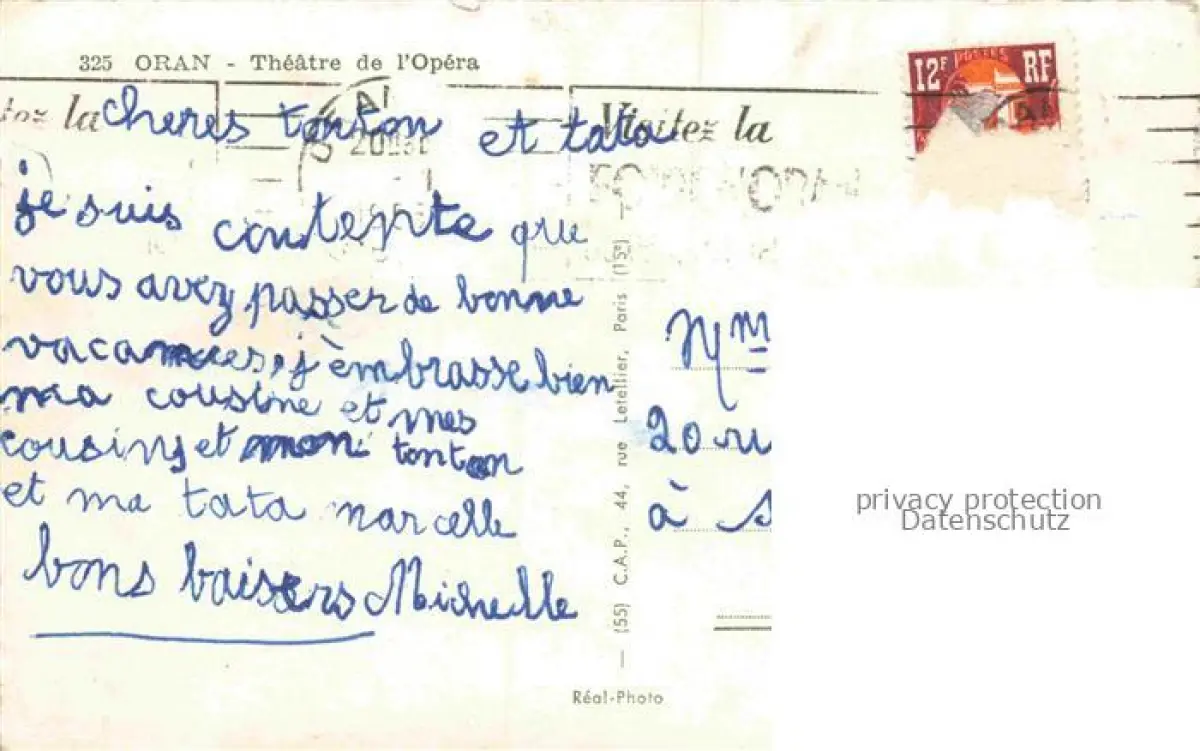 325 ORAN - Théâtre de l'Opéra
12F POSTES RF
la
Visitez la
cheres tonton et tata
je suis contente que
vous avez passer de bonne
vacances, j'èmbrasse bien
ma cousine et mes
cousins et mon tonton
et ma tata marcelle
bons baisers Michelle
(55) C.A.P., 44, rue Letellier, Paris (15e)
Réal-Photo
Mm
20 ru
à
privacy protection
Datenschutz